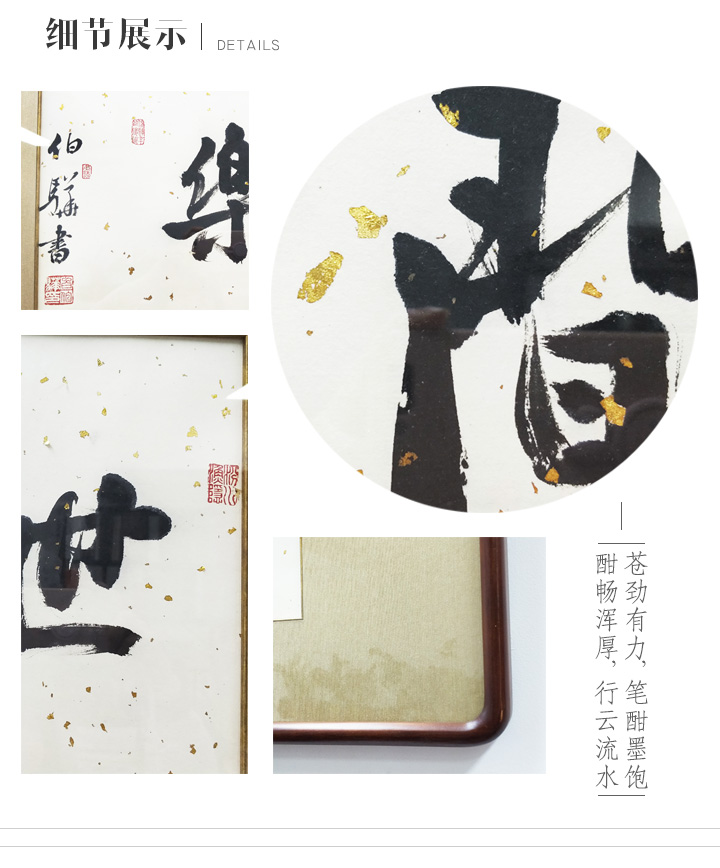 细节展示
DETAILS
伯驊書
樂
世
苍劲有力，笔酣墨饱
酣畅浑厚，行云流水